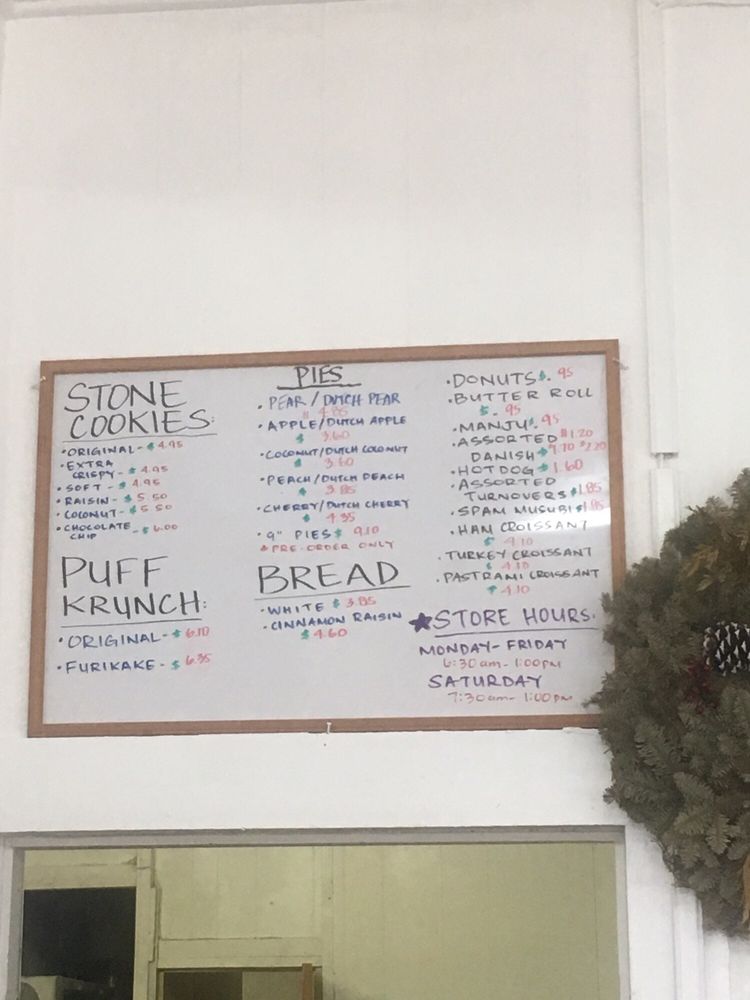 STONE
COOKIES:
• ORIGINAL - $4.95
• EXTRA
CRISPY - $4.95
• SOFT - $4.95
• RAISIN - $5.50
• COCONUT - $5.50
• CHOCOLATE
CHIP - $6.00
PUFF
KRUNCH:
• ORIGINAL - $6.10
• FURIKAKE - $6.35
PIES
• PEAR / DUTCH PEAR
$4.85
• APPLE/DUTCH APPLE
$3.60
• COCONUT/DUTCH COCONUT
$3.60
• PEACH/DUTCH PEACH
$3.85
• CHERRY/DUTCH CHERRY
$4.35
• 9" PIES $9.10
* PRE-ORDER ONLY
BREAD
• WHITE $3.85
• CINNAMON RAISIN
$4.60
• DONUTS $.95
• BUTTER ROLL
$.95
• MANJU $.95
• ASSORTED $1.20
DANISH $2.20
• HOTDOG $1.60
• ASSORTED
TURNOVERS $1.85
• SPAM MUSUBI
• HAM CROISSANT
$4.10
• TURKEY CROISSANT
$4.10
• PASTRAMI CROISSANT
$4.10
★STORE HOURS:
MONDAY - FRIDAY
6:30am - 1:00pm
SATURDAY
7:30am - 1:00pm